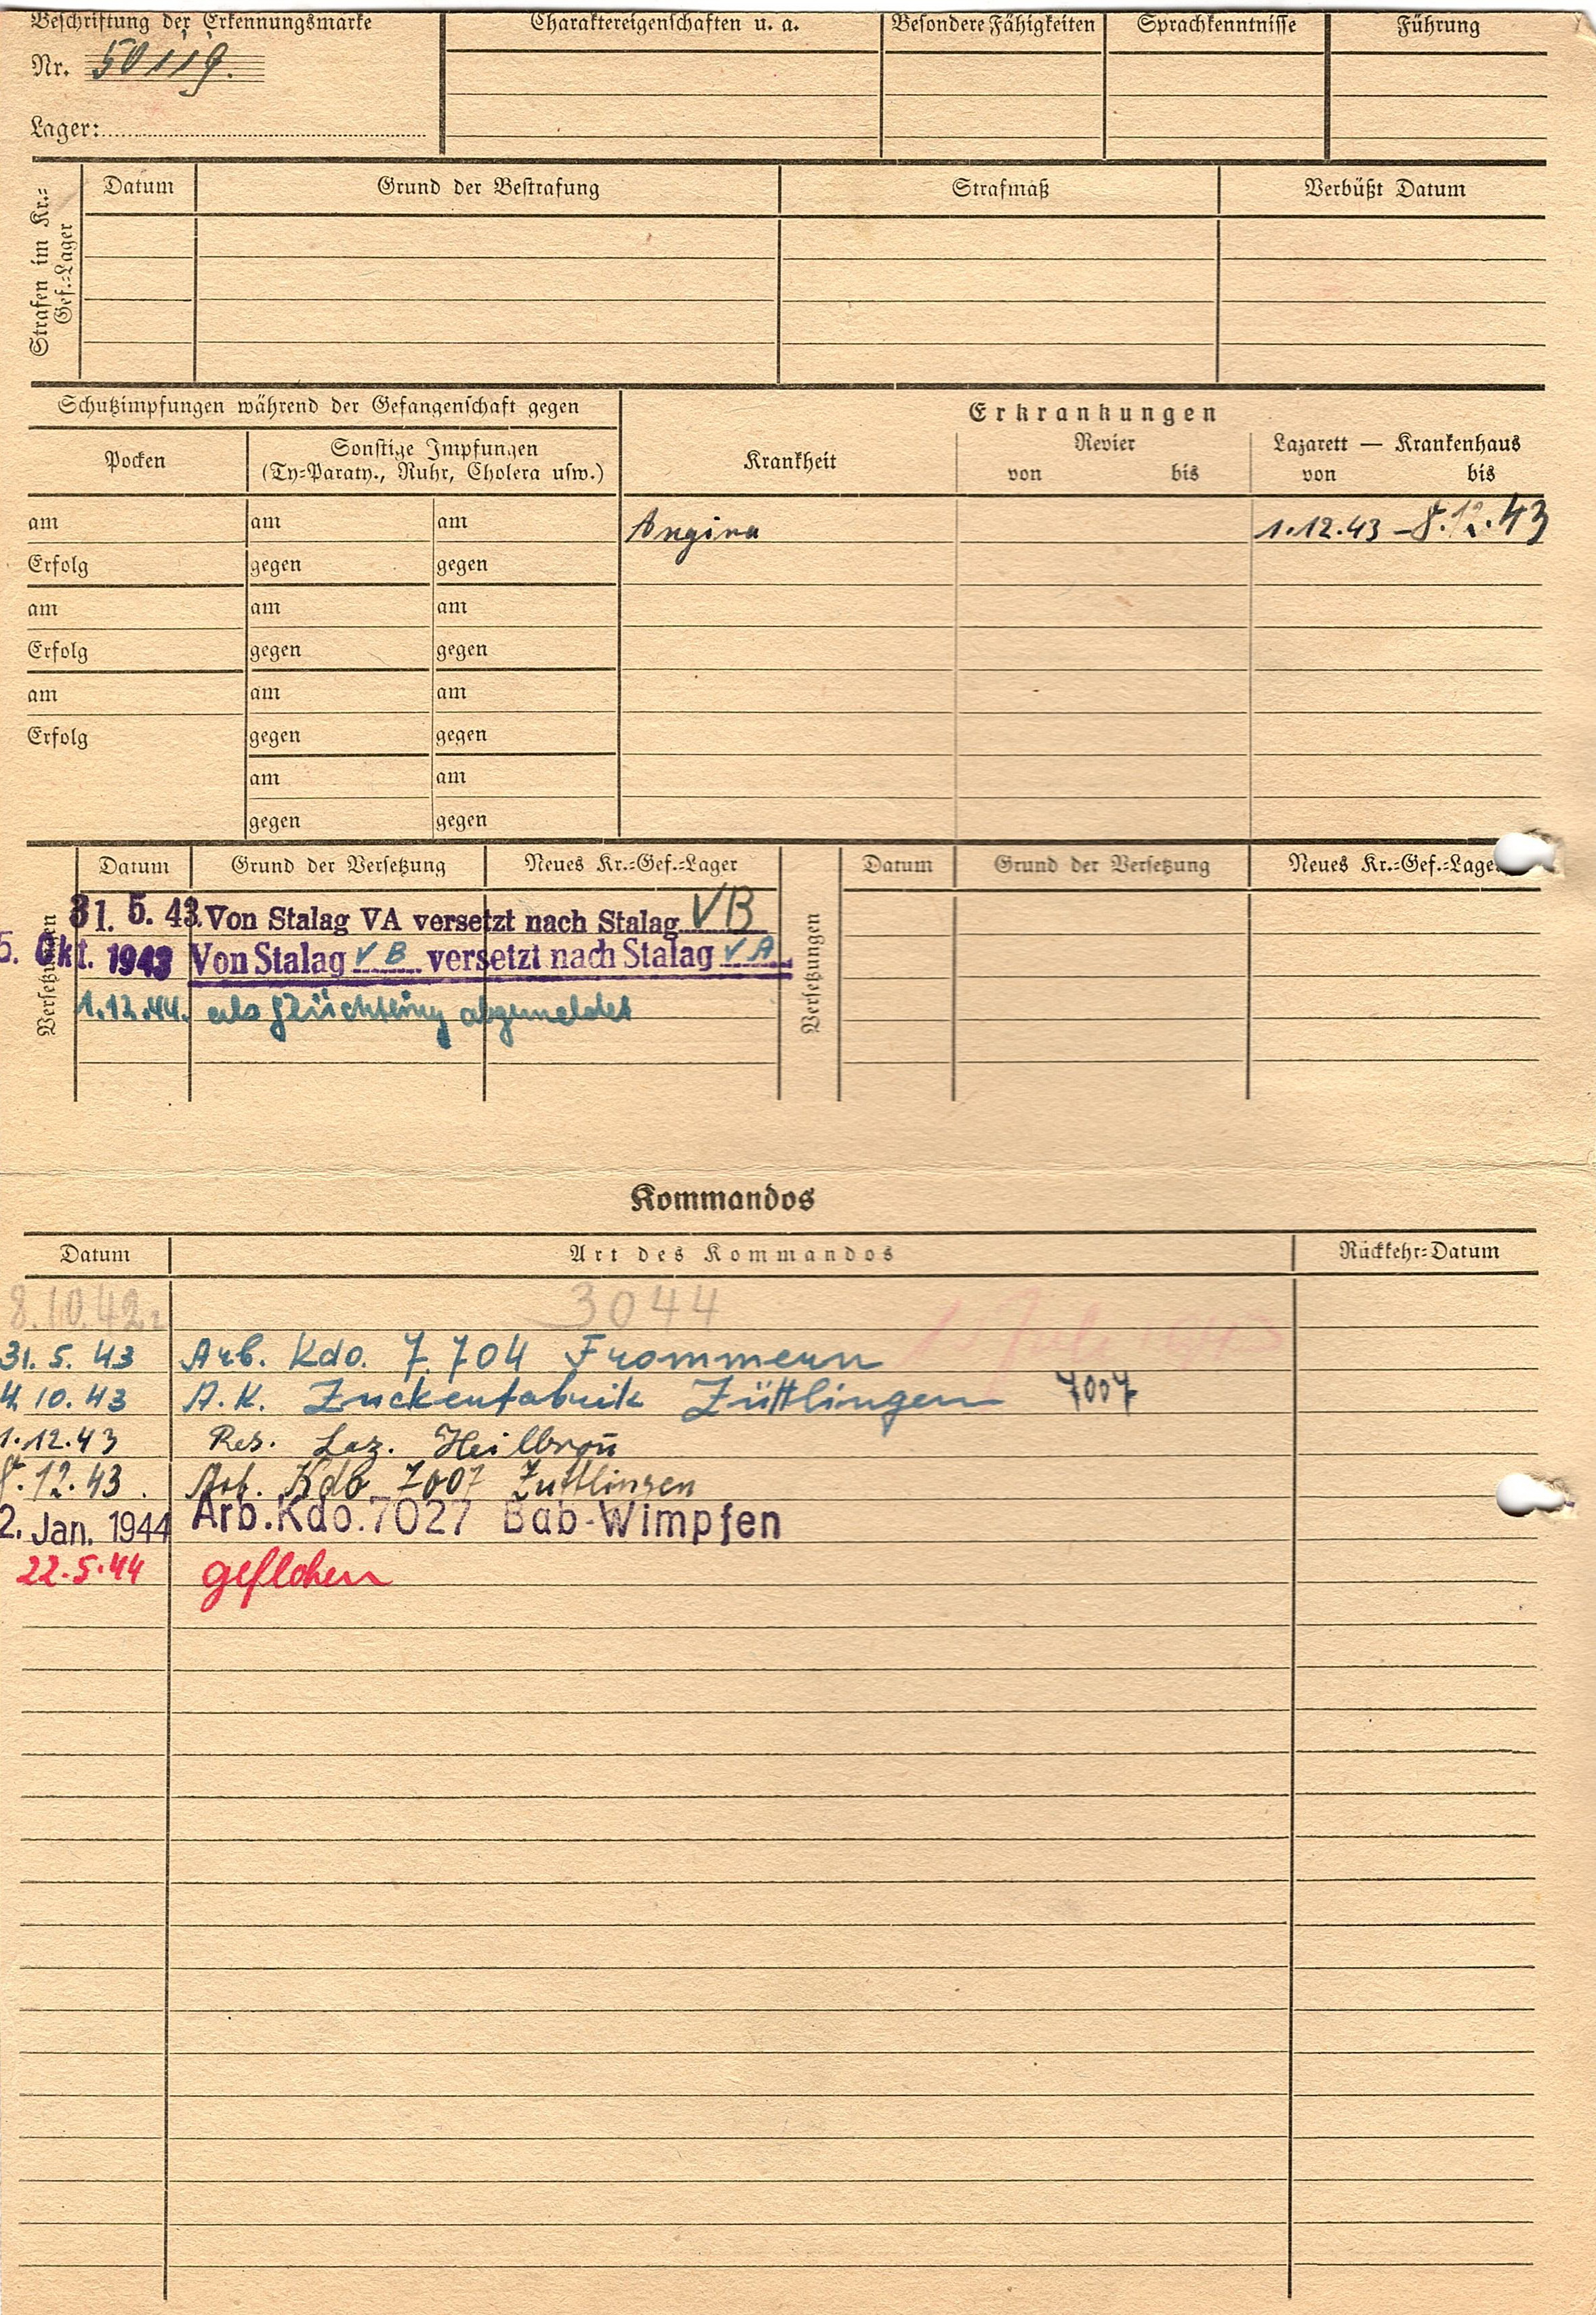 Beschriftung der Erkennungsmarke
Nr. 50119.
Lager:
Charaktereigenschaften u. a.
Besondere Fähigkeiten
Sprachkenntnisse
Führung
Strafen im Kr.=
Gef.=Lager
Datum
Grund der Bestrafung
Strafmaß
Verbüßt Datum
Schutzimpfungen während der Gefangenschaft gegen
Pocken
Sonstige Impfungen
(Ty=Paraty., Ruhr, Cholera usw.)
Erkrankungen
Krankheit
Revier
von bis
Lazarett — Krankenhaus
von bis
am am am Angina 1.12.43 – 8.12.43
Erfolg gegen gegen
am am am
Erfolg gegen gegen
am am am
Erfolg gegen gegen
am am
gegen gegen
Versetzungen
Datum Grund der Versetzung Neues Kr.=Gef.=Lager
31. 5. 43. Von Stalag VA versetzt nach Stalag VB
5. Okt. 1943 Von Stalag VB versetzt nach Stalag VA
1.12.44. als Flüchtling abgemeldet
Versetzungen
Datum Grund der Versetzung Neues Kr.=Gef.=Lager
Kommandos
Datum Art des Kommandos Rückkehr=Datum
8.10.42 3044
31. 5. 43 Arb. Kdo. 7.704 Frommern
4. 10. 43 A.K. Zuckerfabrik Züttlingen 7007
1.12.43 Res. Laz. Heilbron̄
8.12.43. Arb. Kdo 7007 Züttlingen
2. Jan. 1944 Arb.Kdo.7027 Bab-Wimpfen
22.5.44 geflohen